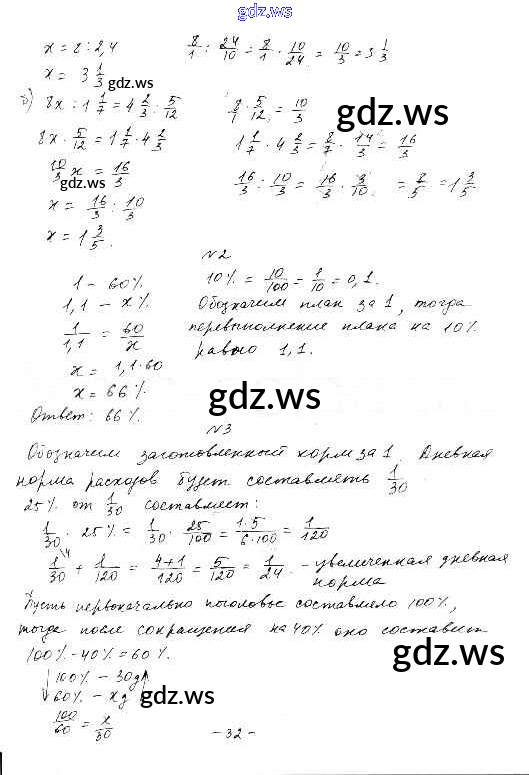 gdz.ws
x = 8 : 2,4
8/1 : 24/10 = 8/1 · 10/24 = 10/3 = 3 1/3
x = 3 1/3
gdz.ws
gdz.ws
б) 8x : 1 1/7 = 4 2/3 : 5/12
8/1 · 5/12 = 10/3
8x · 5/12 = 1 1/7 · 4 2/3
1 1/7 · 4 2/3 = 8/7 · 14/3 = 16/3
10/3 x = 16/3
gdz.ws
16/3 : 10/3 = 16/3 · 3/10 = 8/5 = 1 3/5
x = 16/3 : 10/3
x = 1 3/5.
N2
1 – 60%
10% = 10/100 = 1/10 = 0,1.
1,1 – x%
Обозначим план за 1, тогда
1/1,1 = 60/x
перевыполнение плана на 10%
x = 1,1·60
равно 1,1.
x = 66%
gdz.ws
Ответ: 66%
N3
Обозначим заготовленный корм за 1. Дневная
норма расходов будет составлять 1/30
25% от 1/30 составляет:
gdz.ws
1/30 · 25% = 1/30 · 25/100 = 1·5/6·100 = 1/120
1/30 + 1/120 = 4+1/120 = 5/120 = 1/24. – увеличенная дневная
норма
Пусть первоначально поголовье составляло 100%,
тогда после сокращения на 40% оно составит
100% – 40% = 60%.
gdz.ws
100% – 30д
gdz.ws
60% – xд
100/60 = x/30
– 32 –